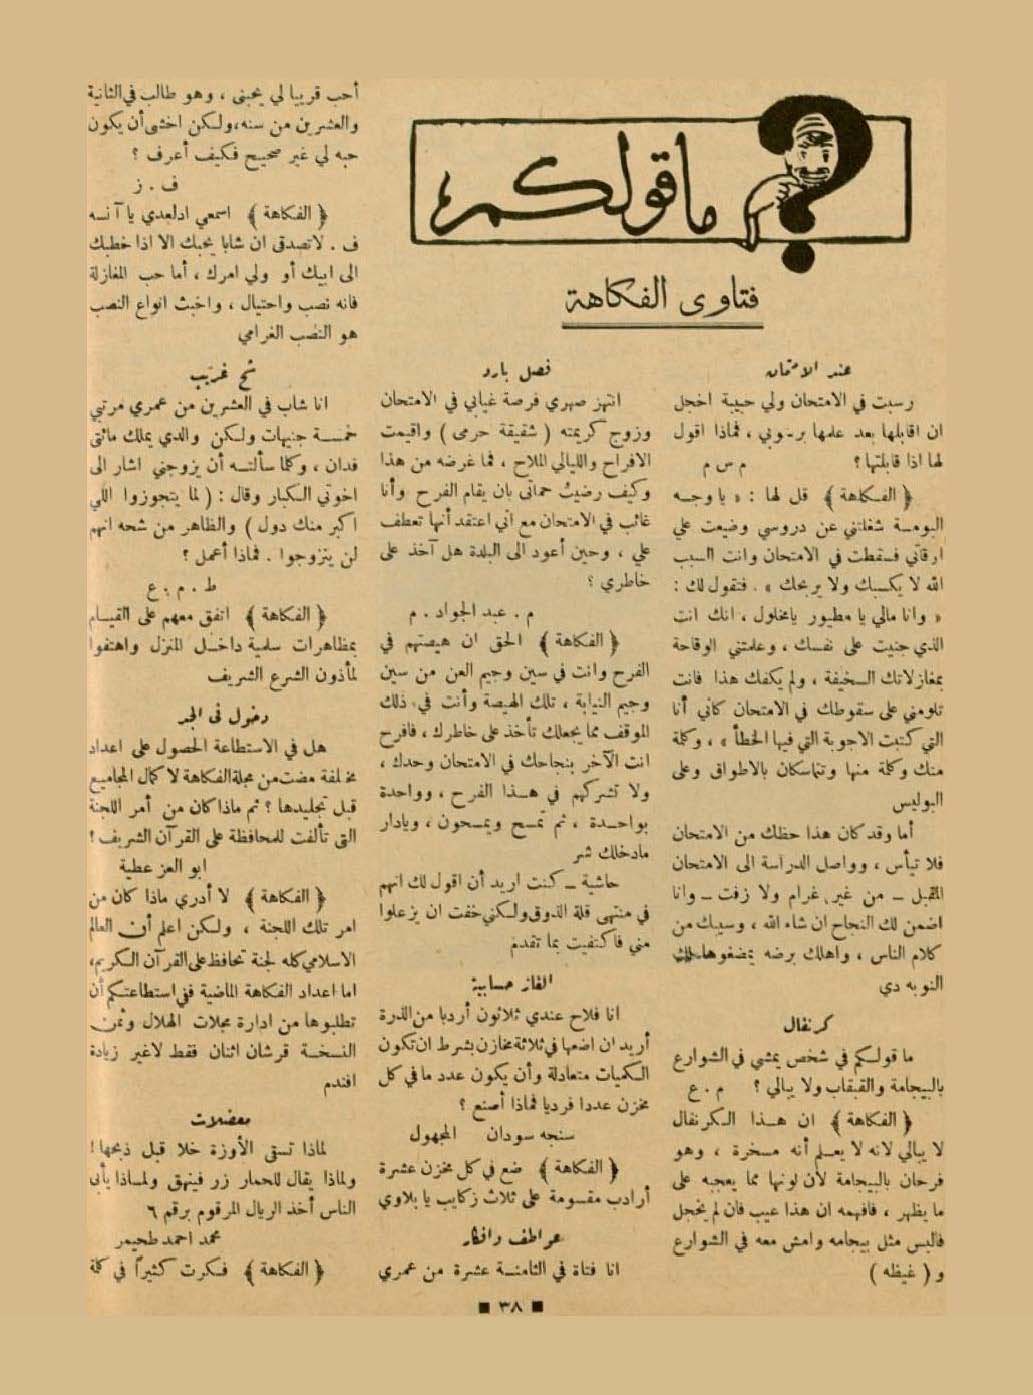 ما قولكم
فتاوى الفكاهة
عند الامتحان
رسبت في الامتحان ولي حبيبة اخجل
ان اقابلها بعد علمها برسوبي ، فماذا اقول
لها اذا قابلتها ؟ م س م
﴿ الفكاهة ﴾ قل لها : « يا وجه
البومة شغلتني عن دروسي وضيعت علي
ارقاتي فسقطت في الامتحان وانت السبب
الله لا يكسبك ولا يربحك » . فتقول لك :
« وانا مالي يا مطيور يامخلول ، انك انت
الذي جنيت على نفسك ، وعلمتني الوقاحة
بمغازلاتك السخيفة ، ولم يكفك هذا فانت
تلومني على سقوطك في الامتحان كاني أنا
التي كتبت الاجوبة التي فيها الخطأ » ، وكلمة
منك وكلمة منها وتتماسكان بالاطواق وعلى
البوليس
أما وقد كان هذا حظك من الامتحان
فلا تيأس ، وواصل الدراسة الى الامتحان
المقبل ــ من غير غرام ولا زفت ــ وانا
اضمن لك النجاح ان شاء الله ، وسيبك من
كلام الناس ، واهلك برضه يمضغوها لك
النوبه دي
كرنفال
ما قولكم في شخص يمشي في الشوارع
بالبيجامة والقبقاب ولا يبالي ؟ م . ع
﴿ الفكاهة ﴾ ان هذا الكرنفال
لا يبالي لانه لا يعلم أنه مسخرة ، وهو
فرحان بالبيجامة لأن لونها مما يعجبه على
ما يظهر ، فافهمه ان هذا عيب فان لم يخجل
فالبس مثل بيجامه وامش معه في الشوارع
و ( غيظه )
فصل بارد
انتهز صهري فرصة غيابي في الامتحان
وزوج كريمته ( شقيقة حرمى ) واقيمت
الافراح والليالي الملاح ، فما غرضه من هذا
وكيف رضيت حماتى بان يقام الفرح وأنا
غائب في الامتحان مع اني اعتقد أنها تعطف
علي ، وحين أعود الى البلدة هل آخذ على
خاطري ؟
م . عبد الجواد . م
﴿ الفكاهة ﴾ الحق ان هيصتهم في
الفرح وانت في سين وجيم العن من سين
وجيم النيابة ، تلك الهيصة وأنت في ذلك
الموقف مما يجعلك تأخذ على خاطرك ، فافرح
انت الآخر بنجاحك في الامتحان وحدك ،
ولا تشركهم في هذا الفرح ، وواحدة
بواحدة ، ثم تمسح ويمسحون ، ويادار
مادخلك شر
حاشية ــ كنت اريد أن اقول لك انهم
في منتهى قلة الذوق ولكني خفت ان يزعلوا
مني فاكتفيت بما تقدم
الغاز حسابية
انا فلاح عندي ثلاثون أردبا من الذرة
أريد ان اضعها في ثلاثة مخازن بشرط ان تكون
الكميات متعادلة وأن يكون عدد ما في كل
مخزن عددا فرديا فماذا أصنع ؟
سنجه سودان المجهول
﴿ الفكاهة ﴾ ضع في كل مخزن عشرة
أرادب مقسومة على ثلاث زكايب يا بلاوي
عواطف وافكار
انا فتاة في الثامنة عشرة من عمري
أحب قريبا لي يحبنى ، وهو طالب في الثانية
والعشرين من سنه ، ولكن اخشى أن يكون
حبه لي غير صحيح فكيف أعرف ؟
ف . ز
﴿ الفكاهة ﴾ اسمعي ادلعدي يا آنسه
ف . لا تصدق ان شابا يحبك الا اذا خطبك
الى ابيك أو ولي امرك ، أما حب المغازلة
فانه نصب واحتيال ، واخبث انواع النصب
هو النصب الغرامي
شح غريب
انا شاب في العشرين من عمري مرتبي
خمسة جنيهات ولكن والدي يملك مائتى
فدان ، وكلما سألته أن يزوجني اشار الى
اخوتي الكبار وقال : ( لما يتجوزوا اللي
اكبر منك دول ) والظاهر من شحه انهم
لن يتزوجوا . فماذا أعمل ؟
ط . م . ع
﴿ الفكاهة ﴾ اتفق معهم على القيام
بمظاهرات سلمية داخل المنزل واهتفوا
لمأذون الشرع الشريف
دخول فى الجد
هل في الاستطاعة الحصول على اعداد
مختلفة مضت من مجلة الفكاهة لا كمال المجاميع
قبل تجليدها ؟ ثم ماذا كان من أمر اللجنة
التى تألفت للمحافظة على القرآن الشريف ؟
ابو العز عطية
﴿ الفكاهة ﴾ لا أدري ماذا كان من
امر تلك اللجنة ، ولكن اعلم أن العالم
الاسلامي كله لجنة تحافظ على القرآن الكريم ،
اما اعداد الفكاهة الماضية ففي استطاعتكم أن
تطلبوها من ادارة مجلات الهلال وثمن
النسخة قرشان اثنان فقط لاغير زيادة
افندم
معضلات
لماذا تسقى الأوزة خلا قبل ذبحها !
ولماذا يقال للحمار زر فينهق ولماذا يأبى
الناس أخذ الريال المرقوم برقم ٦
محمد احمد طحيمر
﴿ الفكاهة ﴾ فكرت كثيراً في كلة
٣٨